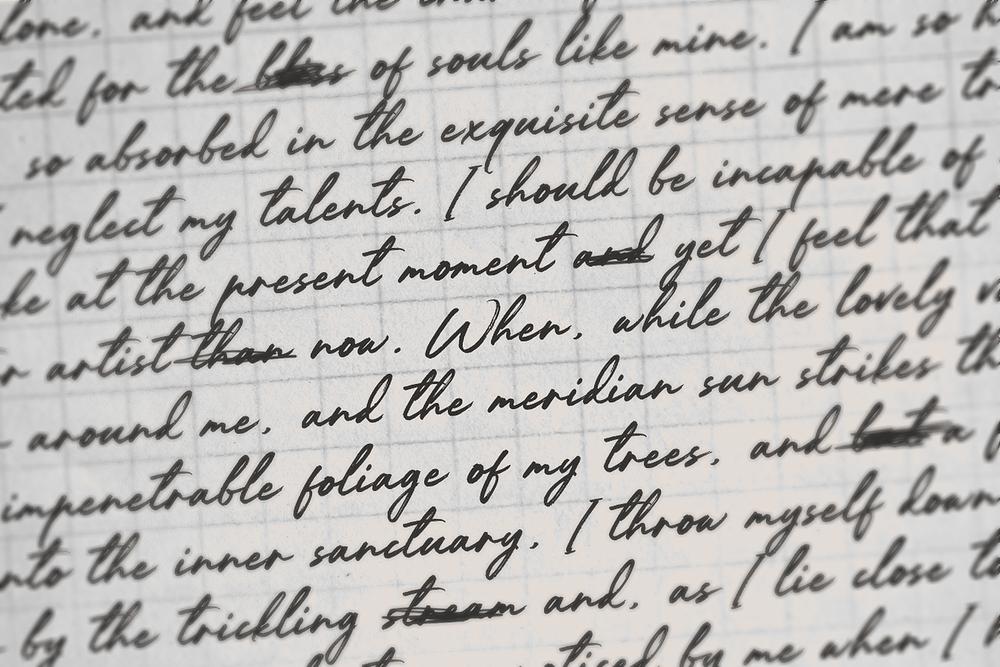 lone, and feel the
ted for the of souls like mine. I am so h
so absorbed in the exquisite sense of mere tr
neglect my talents. I should be incapable of
ke at the present moment and yet I feel that
r artist than now. When, while the lovely v
around me, and the meridian sun strikes th
impenetrable foliage of my trees, and but a f
nto the inner sanctuary, I throw myself down
by the trickling stream and, as I lie close to
by me when I h